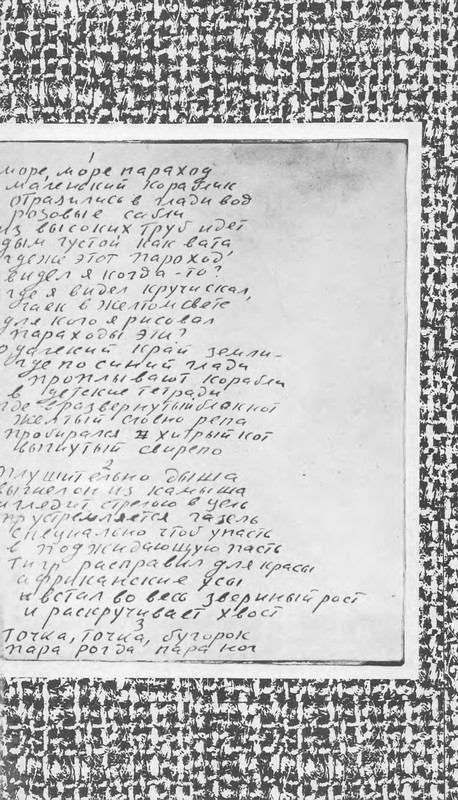 1
море, море параход
маленский кораблик
отразились в глади вод
розовые сабли
из высоких труб идет
дым густой как вата
где же этот пароход,
видел я когда-то?
где я видел кручи скал,
чаек в желтом свете
для кого я рисовал
параходы эти?
далекий край земли-
где по синий глади
проплывают корабли
в детские тетради
где в развернутый блокнот
желтый словно репа
пробирался хитрый кот
выгнутый свирепо
2
оглушительно дыша
вышел он из камыша
и глядит стрелою в цель
устремляется газель
специально чтоб упасть
в поджидающую пасть
тигр расправил для красы
африканские усы
и встал во весь звериный рост
и раскручивает хвост
3
точка, точка, бугорок
пара рог да пара ног